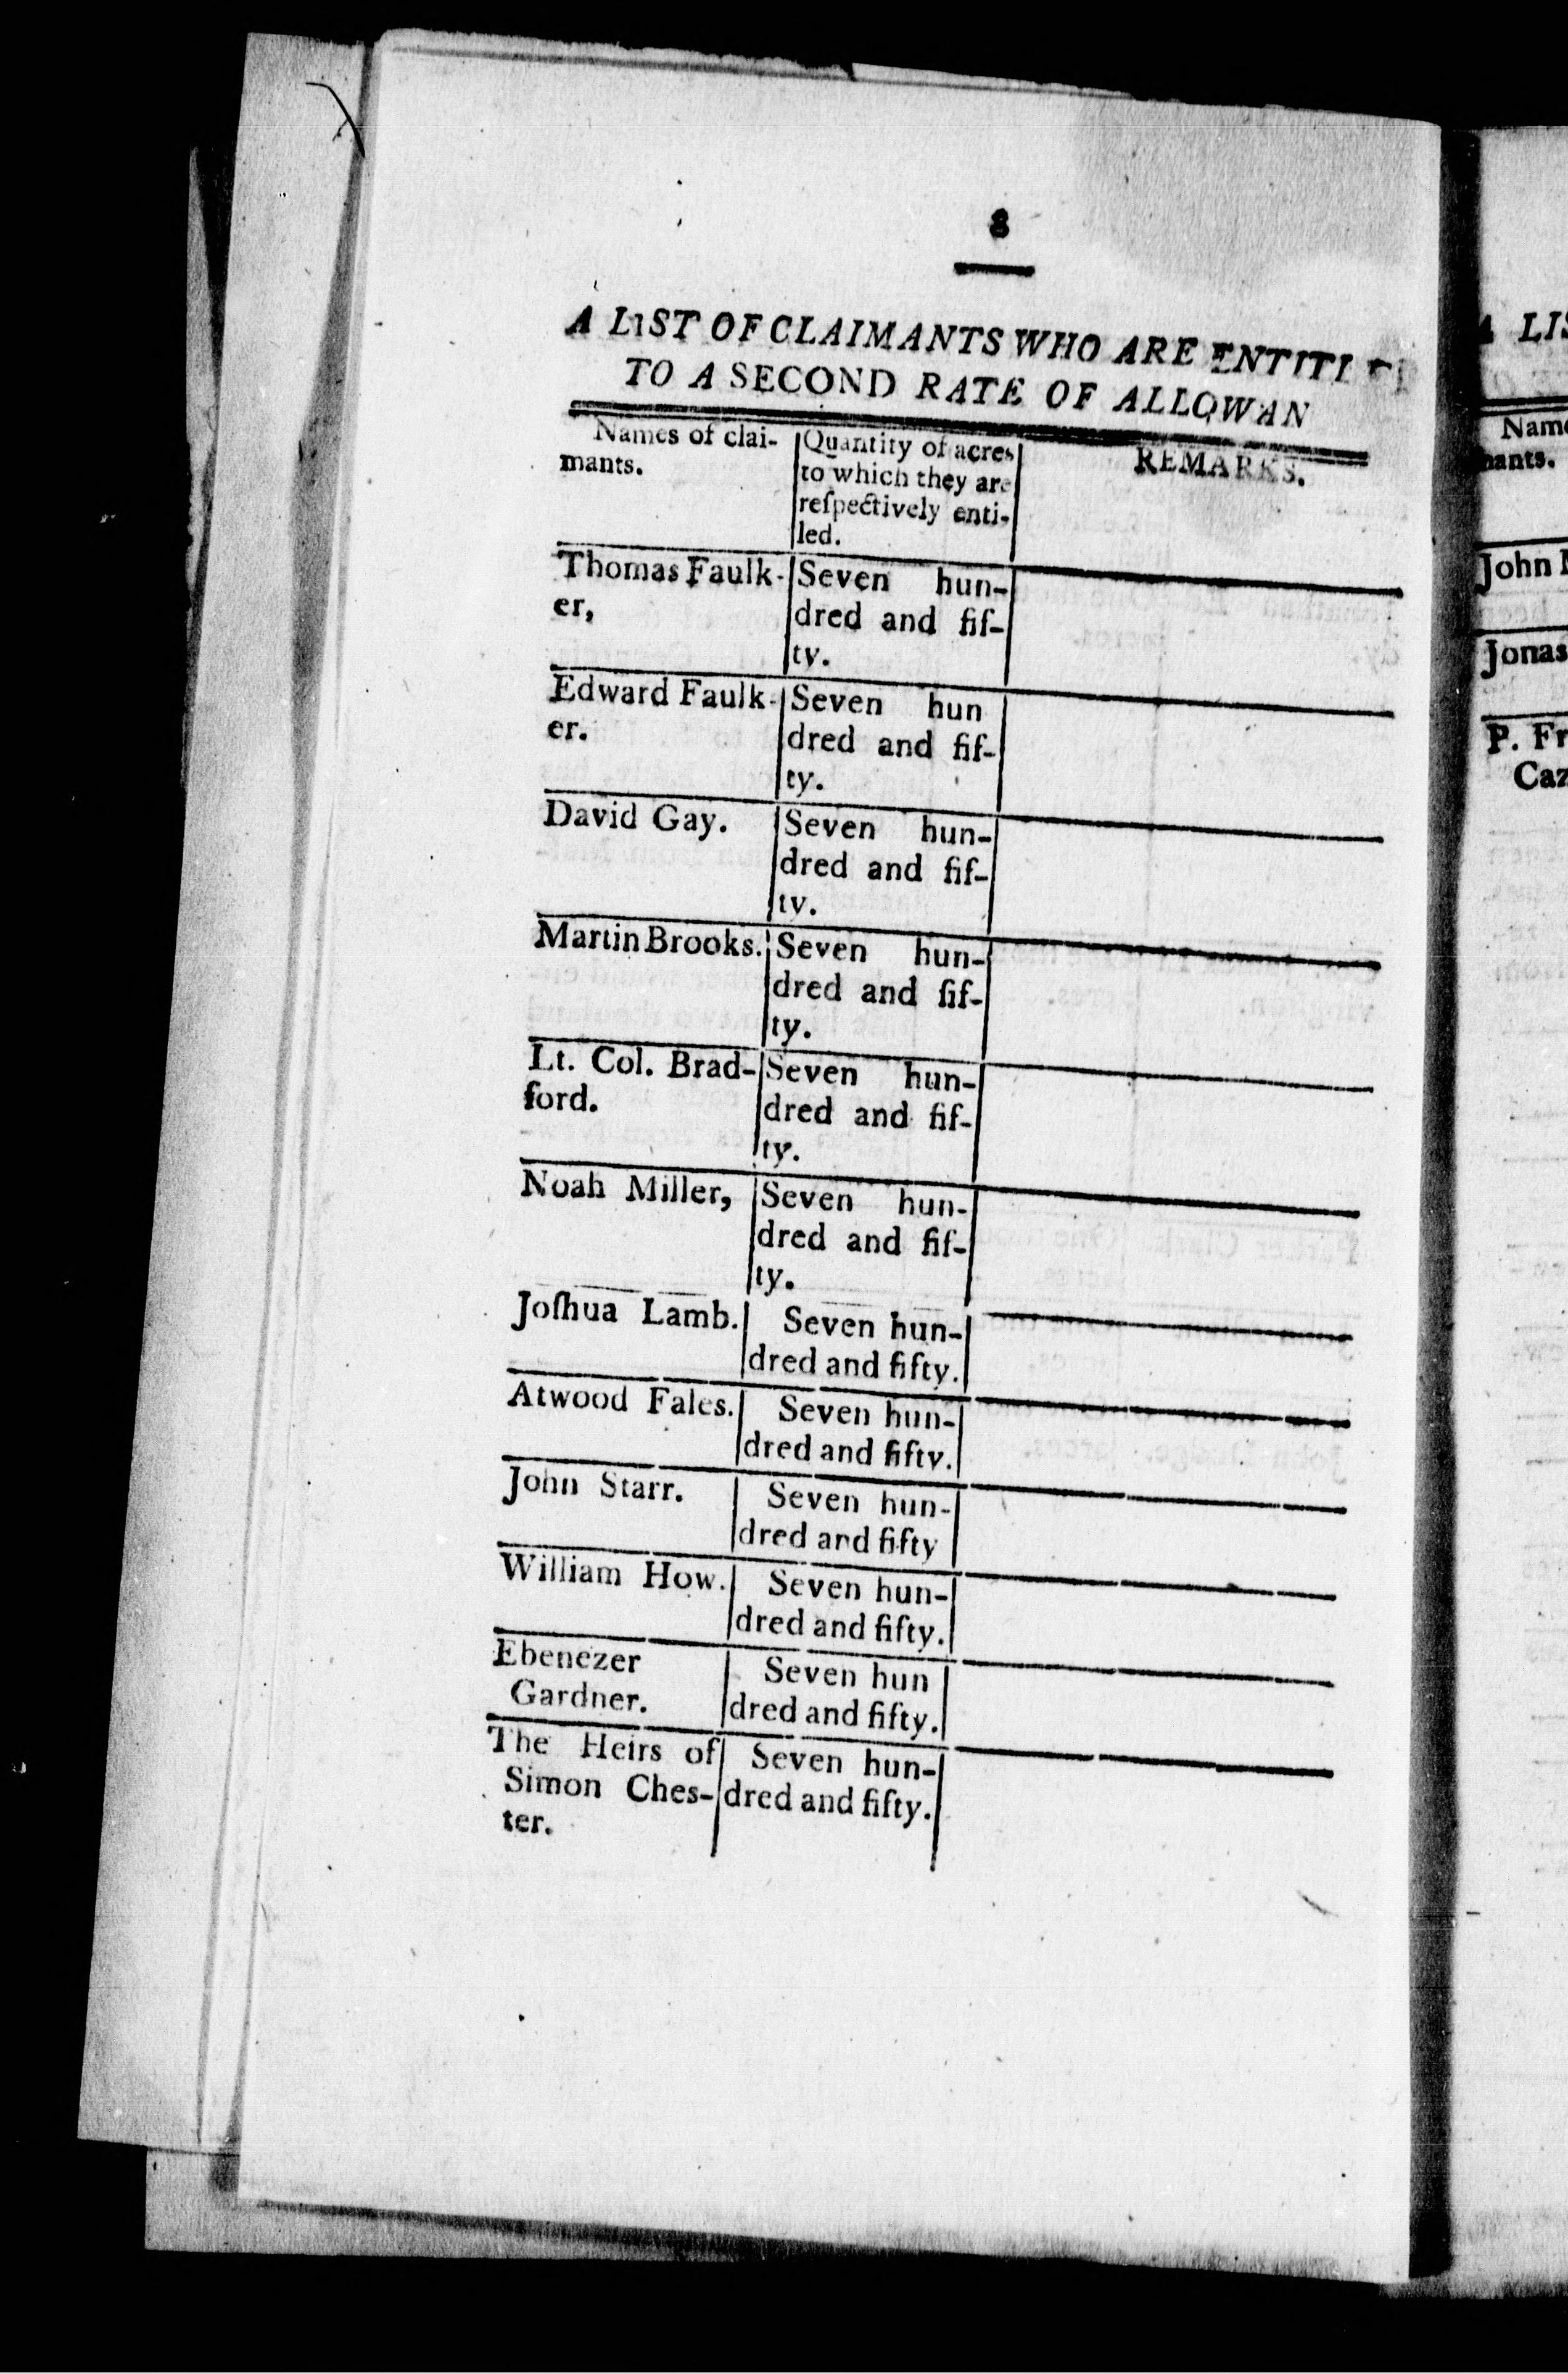 8
A LIST OF CLAIMANTS WHO ARE ENTITLE
TO A SECOND RATE OF ALLOWAN
Names of clai-
mants.
Quantity of acres
to which they are
reſpectively enti-
led.
REMARKS.
Thomas Faulk-
er,
Seven hun-
dred and fif-
ty.
Edward Faulk-
er.
Seven hun
dred and fif-
ty.
David Gay.
Seven hun-
dred and fif-
ty.
Martin Brooks.
Seven hun-
dred and fif-
ty.
Lt. Col. Brad-
ford.
Seven hun-
dred and fif-
ty.
Noah Miller,
Seven hun-
dred and fif-
ty.
Joſhua Lamb.
Seven hun-
dred and fifty.
Atwood Fales.
Seven hun-
dred and fifty.
John Starr.
Seven hun-
dred and fifty
William How.
Seven hun-
dred and fifty.
Ebenezer
Gardner.
Seven hun
dred and fifty.
The Heirs of
Simon Ches-
ter.
Seven hun-
dred and fifty.
A LIS
Name
mants.
John
been
Jonas
P. Fr
Caz